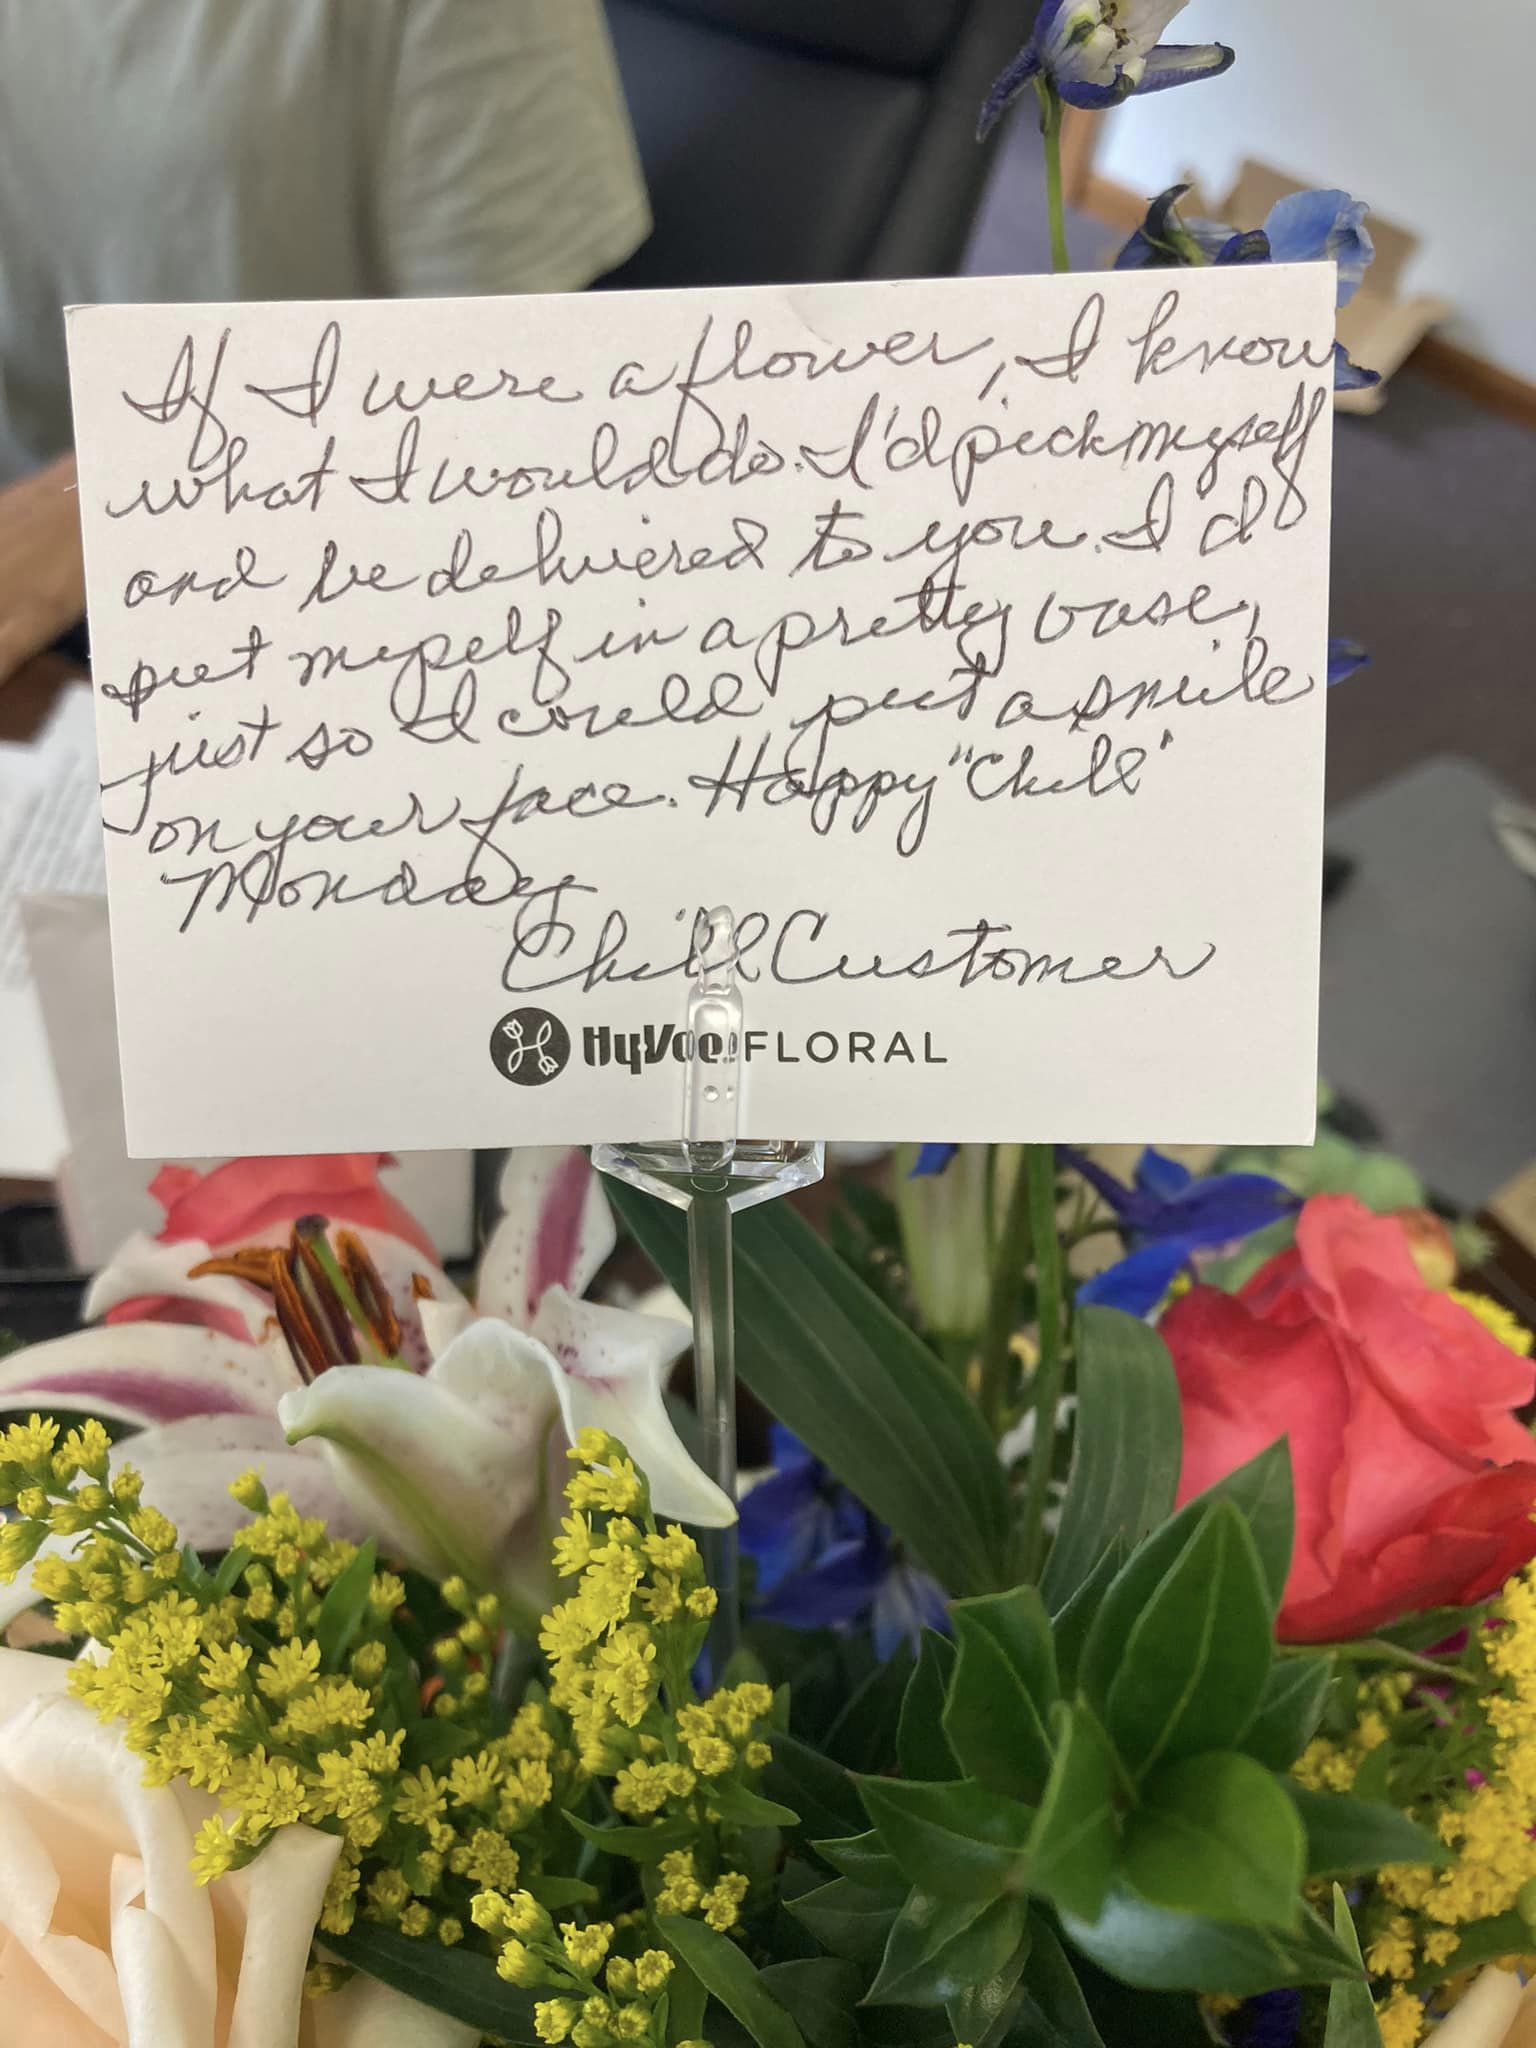 If I were a flower, I know
what I would do. I'd pick myself
and be delivered to you. I'd
put myself in a pretty vase,
just so I could put a smile
on your face. Happy "Chill"
Monday
Chill Customer
HyVee FLORAL